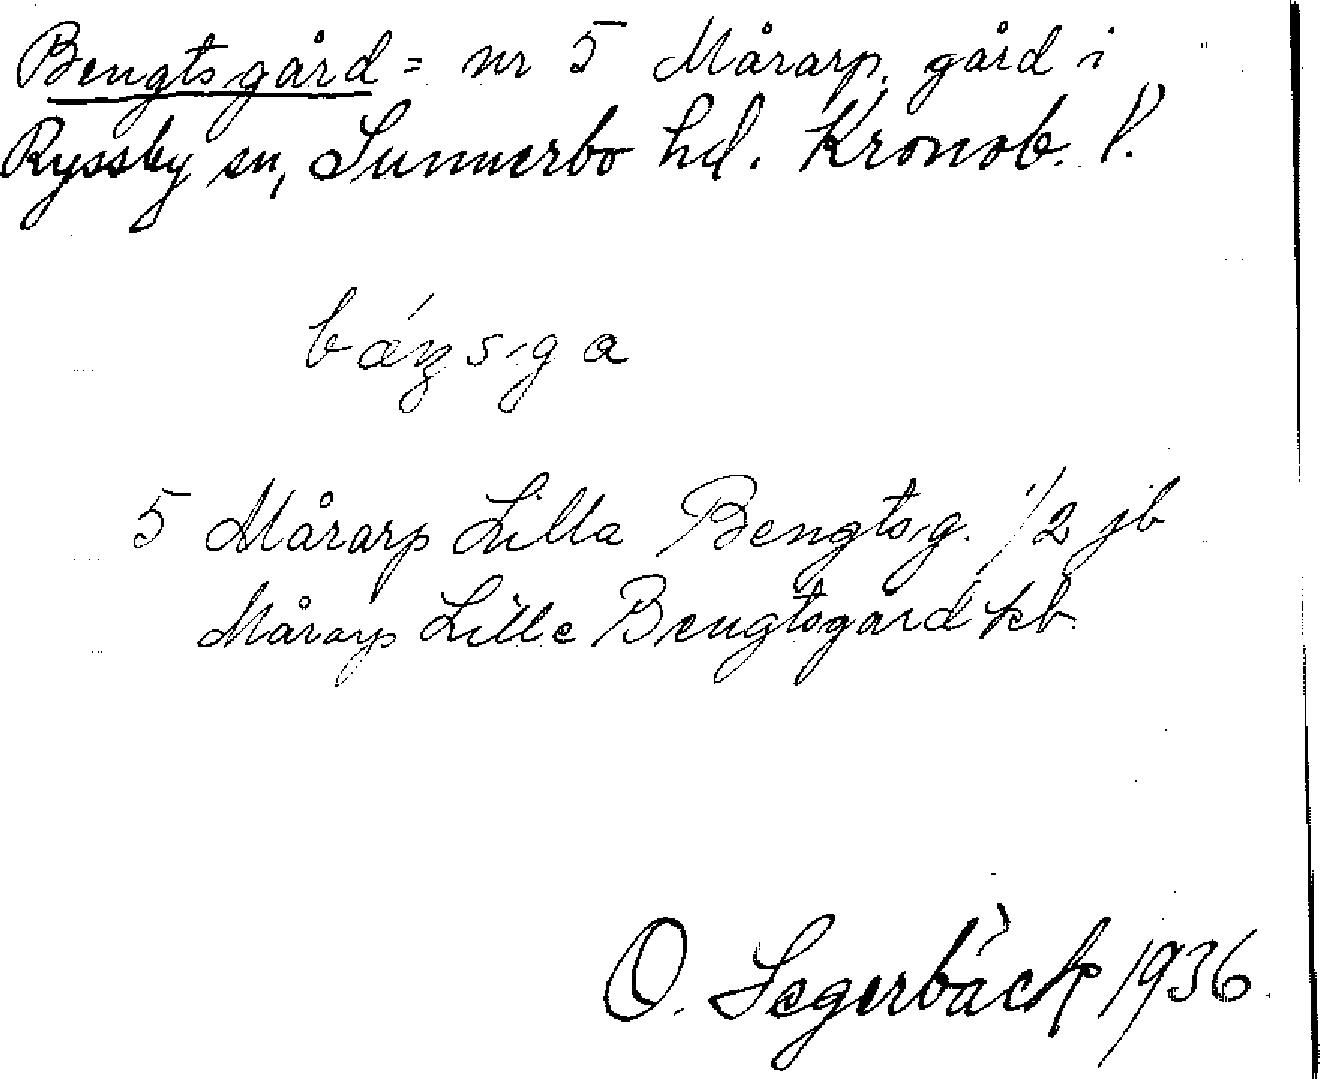 Bengtsgård = nr 5 Mårarp, gård i
Ryssby sn, Sunnerbo hd. Kronob. l.
5 Mårarp Lilla Bengtsg. 1/2 jb
Mårarp Lille Bengtsgård kb
O. Segerbäck 1936